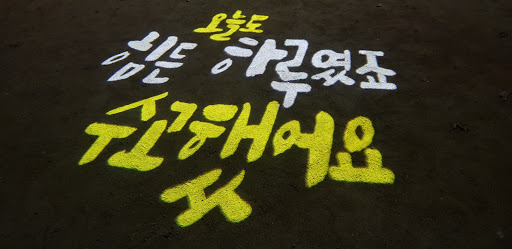 오늘도
힘든 하루였죠
수고했어요